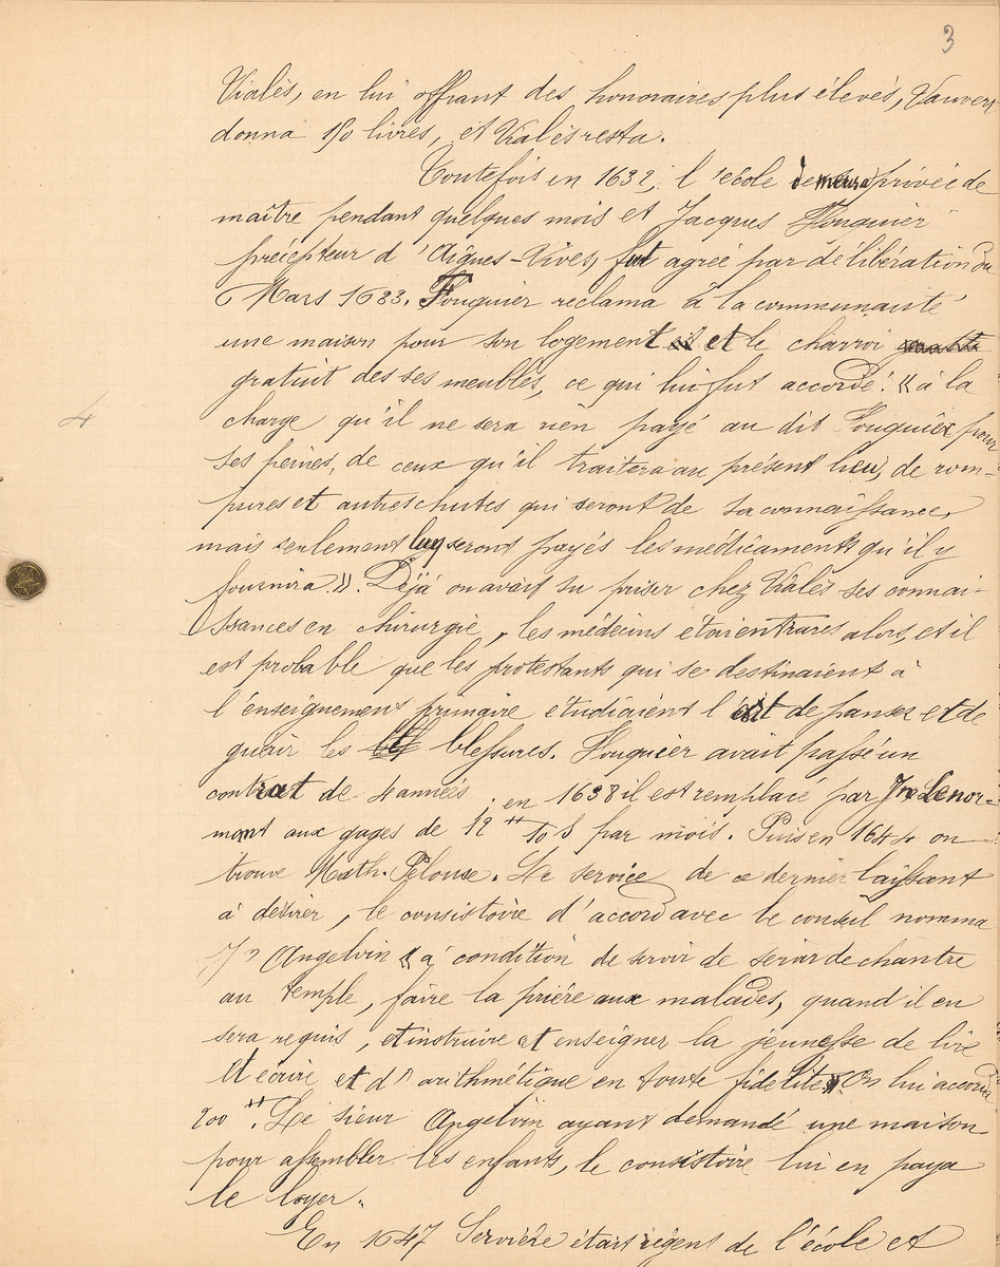 3
Vialès, en lui offrant des honoraires plus élevés, Vauvert
donna 150 livres, et Vialès resta.
Toutefois en 1632, l'école demeura privée de
maître pendant quelques mois et Jacques Fouquier
précepteur d'Aigues-Vives, fut agréé par délibération du
6 Mars 1633. Fouquier réclama à la communauté
une maison pour son logement et le charroi
gratuit des ses meubles, ce qui lui fut accordé. « à la
charge qu'il ne sera rien payé au dit Fouquier pour
ses peines, de ceux qu'il traitera au présent lieu, de rom-
pures et autres chutes qui seront de sa connaissance,
mais seulement luy seront payés les médicaments qu'il y
fournira ». Déjà on avait su priser chez Vialès ses connai-
ssances en chirurgie, les médecins étaient rares alors, et il
est probable que les protestants qui se destinaient à
l'enseignement primaire étudiaient l'art de panser et de
guérir les blessures. Fouquier avait passé un
contrat de 4 années ; en 1638 il est remplacé par Jn Lenor-
mant aux gages de 12 ++ 10 S par mois. Puis en 1644 on
trouve Math. Pelouse. Le service de ce dernier laissant
à désirer, le consistoire d'accord avec le conseil nomma
Jn Angelvin « à condition de servir de servir de chantre
au temple, faire la prière aux malades, quand il en
sera requis, et instruire et enseigner la jeunesse de lire
et écrire et d'arithmétique en toute fidélité » On lui accorda
200 ++. Le sieur Angelvin ayant demandé une maison
pour assembler les enfants, le consistoire lui en paya
le loyer.
En 1647 Servière était régent de l'école et
4